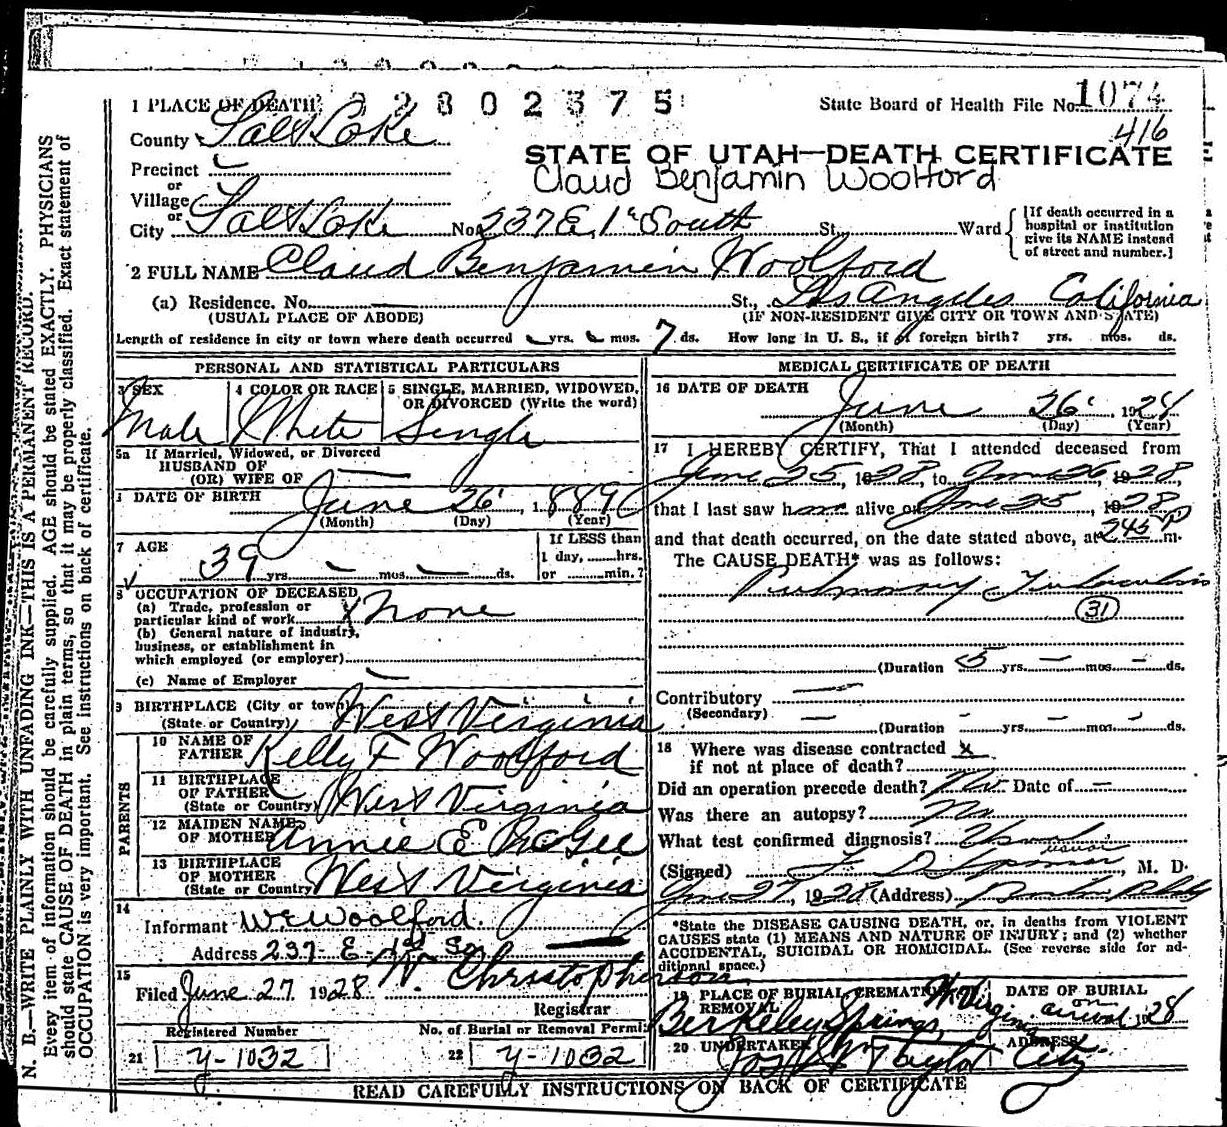 1 PLACE OF DEATH 2 3 0 2 3 7 5
State Board of Health File No. 1074
416
County Salt Lake
STATE OF UTAH—DEATH CERTIFICATE
Precinct
Claud Benjamin Woolford
or
Village
or
City Salt Lake No. 237 E. 1st South St. Ward
[If death occurred in a hospital or institution give its NAME instead of street and number.]
2 FULL NAME Claud Benjamin Woolford
(a) Residence. No. — St., Los Angeles California
(USUAL PLACE OF ABODE) (IF NON-RESIDENT GIVE CITY OR TOWN AND STATE)
Length of residence in city or town where death occurred yrs. mos. 7 ds. How long in U. S., if of foreign birth? yrs. mos. ds.
PERSONAL AND STATISTICAL PARTICULARS
3 SEX 4 COLOR OR RACE 5 SINGLE, MARRIED, WIDOWED,
OR DIVORCED (Write the word)
Male White Single
5a If Married, Widowed, or Divorced
HUSBAND OF
(OR) WIFE OF —
DATE OF BIRTH June 26
(Month) (Day) (Year)
7 AGE 39 yrs. — mos. — ds.
If LESS than
1 day, hrs.
or min.?
8 OCCUPATION OF DECEASED
(a) Trade, profession or
particular kind of work None
(b) General nature of industry,
business, or establishment in
which employed (or employer)
(c) Name of Employer —
9 BIRTHPLACE (City or town)
(State or Country) West Virginia
PARENTS
10 NAME OF
FATHER Kelly F Woolford
11 BIRTHPLACE
OF FATHER
(State or Country) West Virginia
12 MAIDEN NAME
OF MOTHER Annie E McGee
13 BIRTHPLACE
OF MOTHER
(State or Country) West Virginia
14
Informant W E Woolford.
Address 237 E 1st So
15
Filed June 27 1928 W. Christopherson
Registrar
Registered Number No. of Burial or Removal Permit
21 Y-1032 22 Y-1032
MEDICAL CERTIFICATE OF DEATH
16 DATE OF DEATH
June 26, 1928
(Month) (Day) (Year)
17 I HEREBY CERTIFY, That I attended deceased from
June 25, 1928, to June 26, 1928,
that I last saw him alive on June 25, 1928
and that death occurred, on the date stated above, at 245 P m.
The CAUSE DEATH* was as follows:
Pulmonary Tuberculosis
31
(Duration 5 yrs. — mos. — ds.
Contributory —
(Secondary) — (Duration — yrs. — mos. — ds.
18 Where was disease contracted x
if not at place of death?
Did an operation precede death? No Date of —
Was there an autopsy? No
What test confirmed diagnosis? Usual
(Signed) M. D.
June 27, 1928 (Address)
*State the DISEASE CAUSING DEATH, or, in deaths from VIOLENT
CAUSES state (1) MEANS AND NATURE OF INJURY; and (2) whether
ACCIDENTAL, SUICIDAL OR HOMICIDAL. (See reverse side for ad-
ditional space.)
19 PLACE OF BURIAL, CREMATION, DATE OF BURIAL
REMOVAL
Berkeley Springs, W. Virginia on arrival 1928
20 UNDERTAKER ADDRESS
Jos Wm Taylor City
READ CAREFULLY INSTRUCTIONS ON BACK OF CERTIFICATE
N. B.—WRITE PLAINLY WITH UNFADING INK—THIS IS A PERMANENT RECORD.
Every item of information should be carefully supplied. AGE should be stated EXACTLY. PHYSICIANS
should state CAUSE OF DEATH in plain terms, so that it may be properly classified. Exact statement of
OCCUPATION is very important. See instructions on back of certificate.